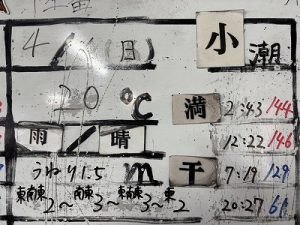 4/1(日) 小潮
20℃ 満 2:43 144
雨/晴 12:22 146
うねり1.5m 干 7:19 129
東南東2~南東3~東南東3~東2 20:27 61